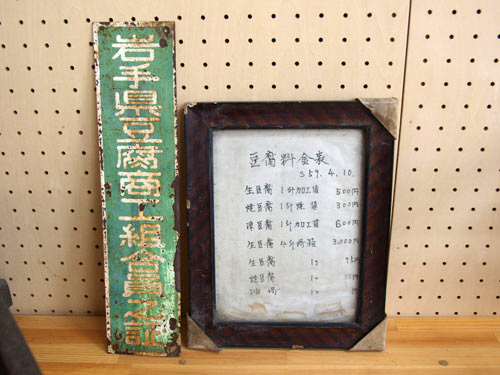 岩手県豆腐商工組合員之証
豆腐料金表
S59.4.10.
生豆腐 1升加工賃 500円
焼豆腐 1升焼賃 300円
凍豆腐 1升加工賃 600円
生豆腐 4升 箱 3,000円
生豆腐 1ケ
焼豆腐 1ケ
油揚 1ケ